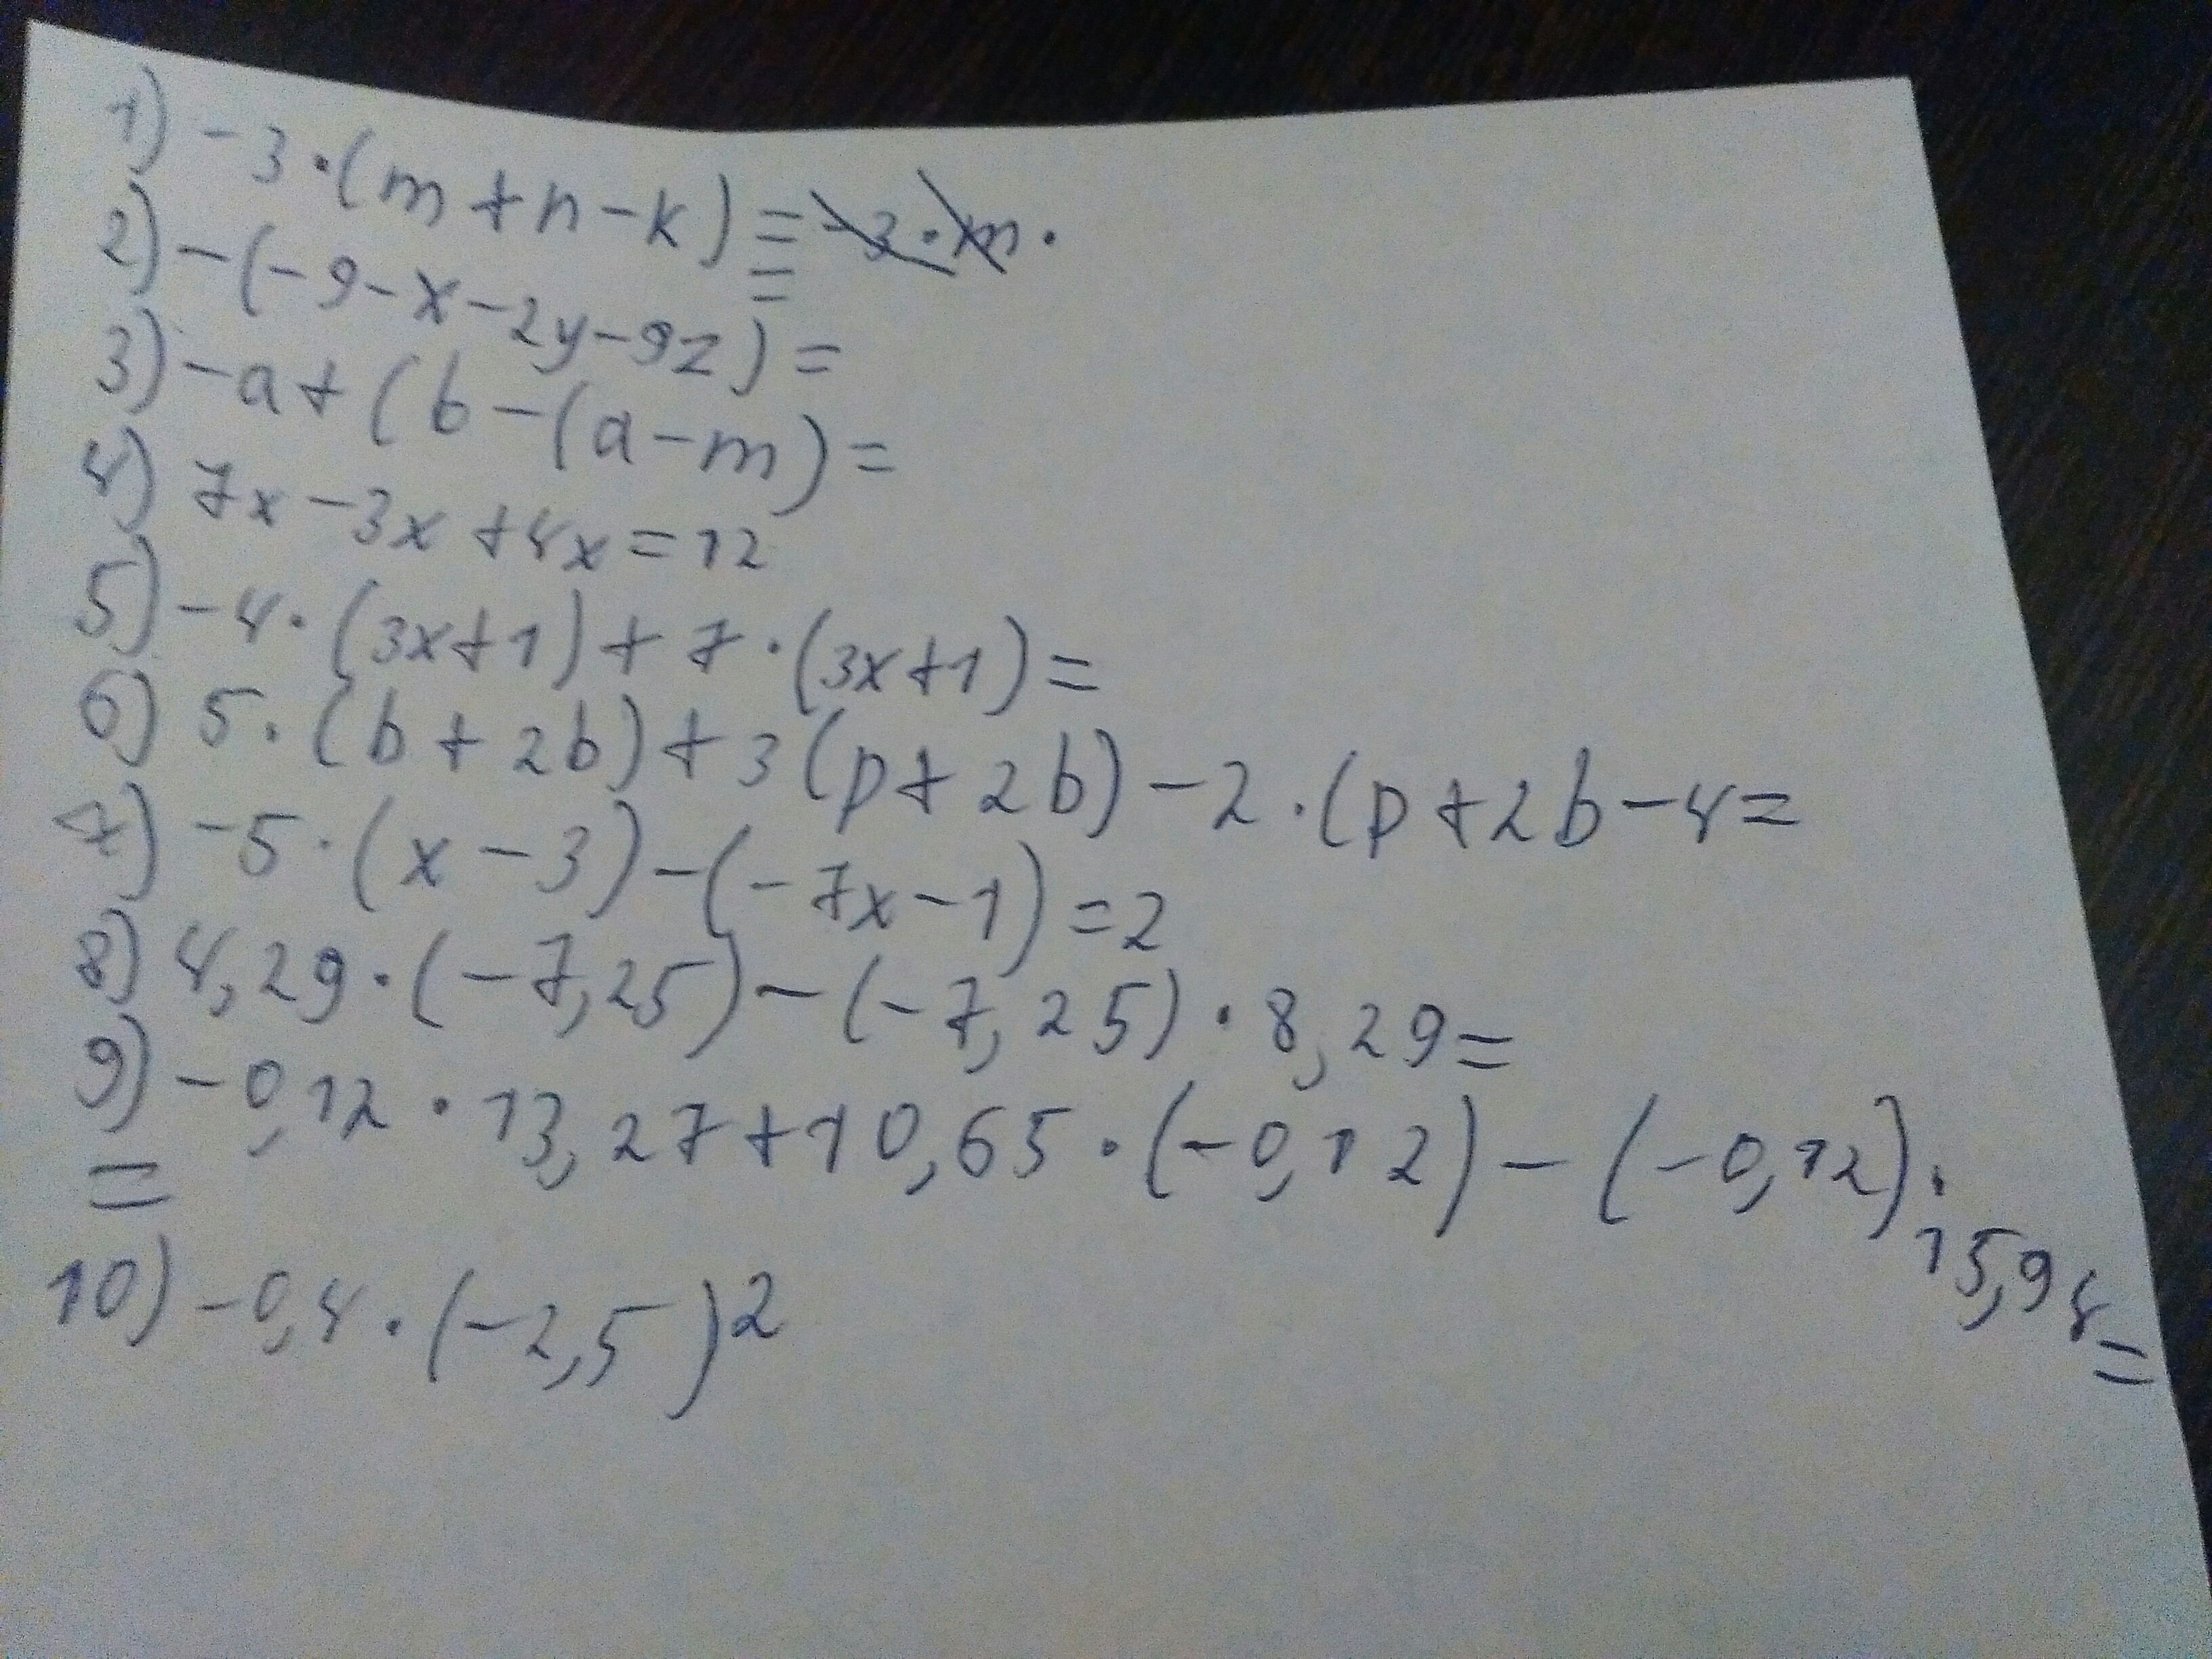 1) -3·(m+n-k)= -3·m·
=
2) -(-9-x-2y-9z)=
3) -a+(b-(a-m)=
4) 7x-3x+4x=12
5) -4·(3x+1)+7·(3x+1)=
6) 5·(b+2b)+3(p+2b)-2·(p+2b-4=
7) -5·(x-3)-(-7x-1)=2
8) 4,29·(-7,25)-(-7,25)·8,29=
9) -0,12·13,27+10,65·(-0,12)-(-0,12)·15,94=
=
10) -0,4·(-2,5)²